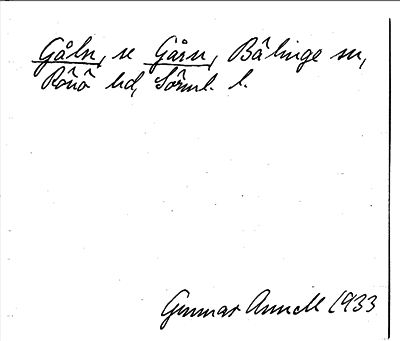 Gåln, se Gårn, Bälinge sn,
Rönö hd, Sörml. l.
Gunnar Annell 1933